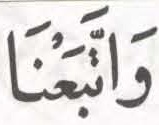 وَاتَّبَعْنَا